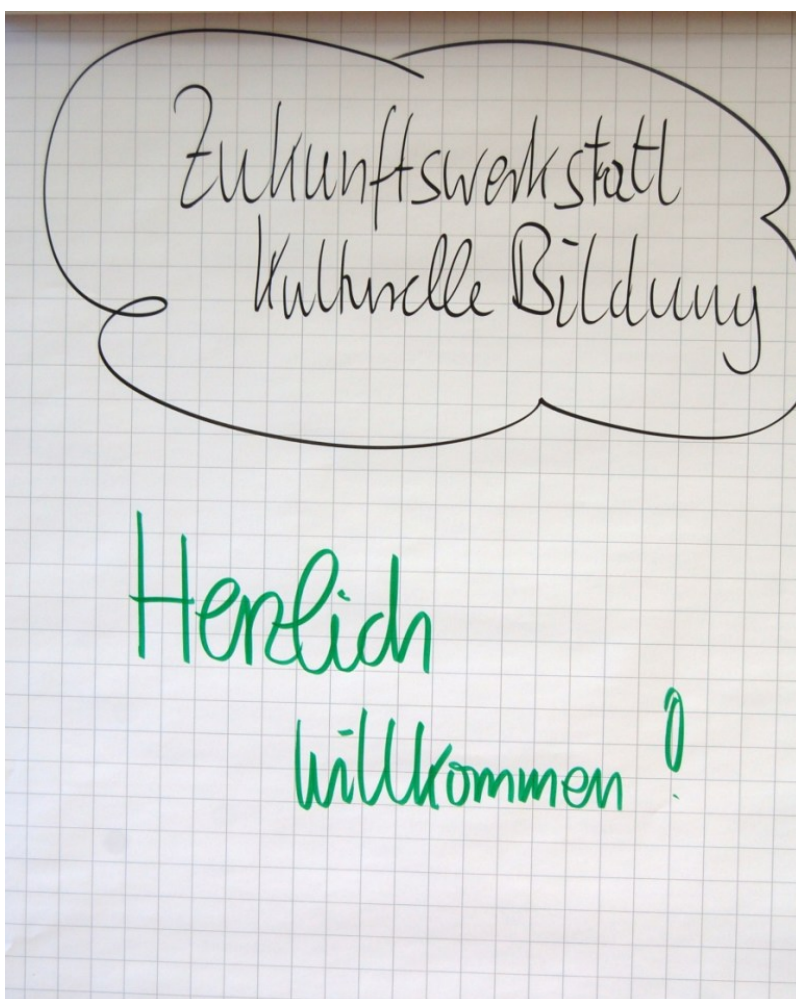 Zukunftswerkstatt
Kulturelle Bildung
Herzlich
willkommen!